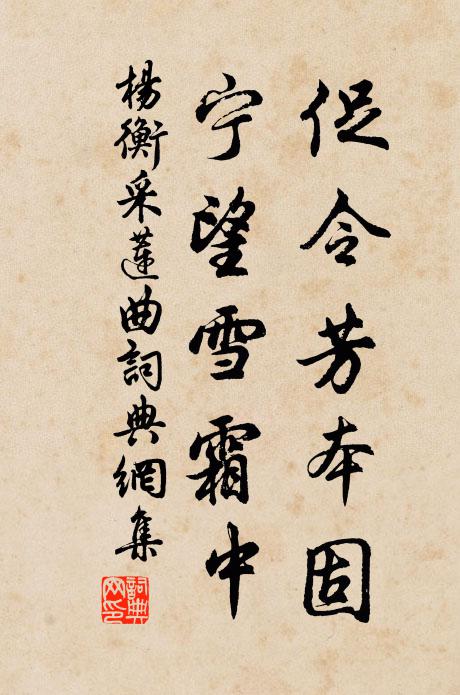 促令芳本固
宁望雪霜中
楊衡采蓮曲詞典網集
詞典网印